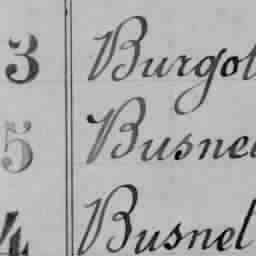 3 Burgot
5 Busnel
4 Busnel